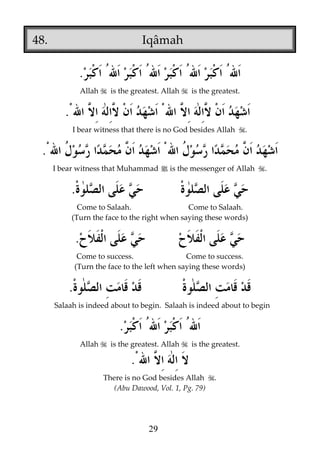 48. Iqâmah
اَللهُ اَكْبَرْ اَللهُ اَكْبَرْ اَللهُ اَكْبَرْ اَللهُ اَكْبَرْ.
Allah ﷻ is the greatest. Allah ﷻ is the greatest.
اَشْهَدُ اَنْ لَّاِلٰهَ اِلَّا اللهْ اَشْهَدُ اَنْ لَّاِلٰهَ اِلَّا اللهْ.
I bear witness that there is no God besides Allah ﷻ.
اَشْهَدُ اَنَّ مُحَمَّدًا رَّسُوْلُ اللهْ اَشْهَدُ اَنَّ مُحَمَّدًا رَّسُوْلُ اللهْ.
I bear witness that Muhammad ﷺ is the messenger of Allah ﷻ.
حَيَّ عَلَى الصَّلٰوةْ حَيَّ عَلَى الصَّلٰوةْ.
Come to Salaah. Come to Salaah.
(Turn the face to the right when saying these words)
حَيَّ عَلَى الْفَلَاحْ حَيَّ عَلَى الْفَلَاحْ.
Come to success. Come to success.
(Turn the face to the left when saying these words)
قَدْ قَامَتِ الصَّلٰوةْ قَدْ قَامَتِ الصَّلٰوةْ.
Salaah is indeed about to begin. Salaah is indeed about to begin
اَللهُ اَكْبَرْ اَللهُ اَكْبَرْ.
Allah ﷻ is the greatest. Allah ﷻ is the greatest.
لَا اِلٰهَ اِلَّا اللهْ.
There is no God besides Allah ﷻ.
(Abu Dawood, Vol. 1, Pg. 79)
29